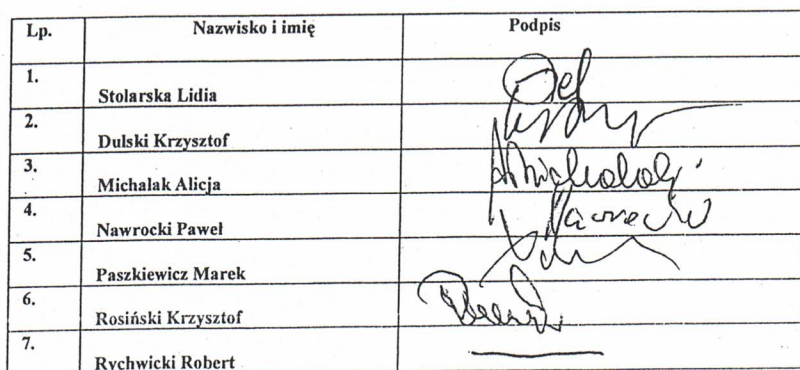 Lp. Nazwisko i imię Podpis
1. Stolarska Lidia
2. Dulski Krzysztof
3. Michalak Alicja
4. Nawrocki Paweł
5. Paszkiewicz Marek
6. Rosiński Krzysztof
7. Rychwicki Robert